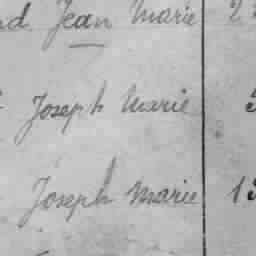 nd Jean Marie 2
Joseph Marie
Joseph Marie 13